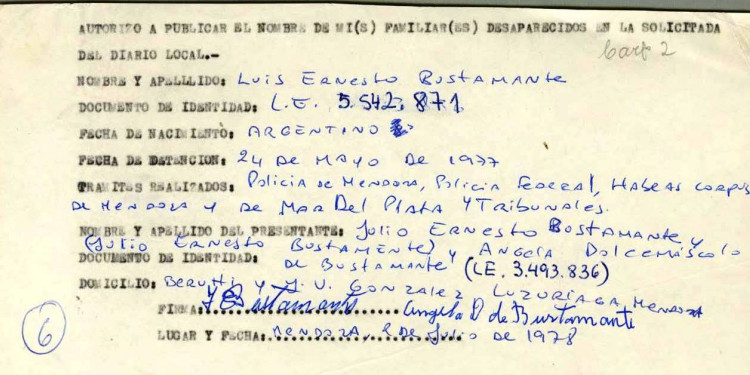 AUTORIZO A PUBLICAR EL NOMBRE DE MI(S) FAMILIAR(ES) DESAPARECIDOS EN LA SOLICITADA
DEL DIARIO LOCAL.-
Cart 2
NOMBRE Y APELLLIDO: Luis Ernesto Bustamante
DOCUMENTO DE IDENTIDAD: L.E. 5.542.871
FECHA DE NACIMIENTO: ARGENTINO
FECHA DE DETENCION: 24 DE MAYO DE 1977
TRAMITES REALIZADOS: Policia de Mendoza, Policia Federal, Habeas corpus
de Mendoza y de Mar Del Plata y Tribunales.
NOMBRE Y APELLIDO DEL PRESENTANTE: Julio Ernesto Bustamante y
(Julio Ernesto Bustamente) y Angela Dolcemáscolo
DOCUMENTO DE IDENTIDAD: de Bustamante (LE. 3.493.836)
DOMICILIO: Berutti y J.V. Gonzalez Luzuriaga Mendoza
FIRMA: J Bustamante Angela D de Bustamante
LUGAR Y FECHA: Mendoza, 2 de Julio de 1978
6